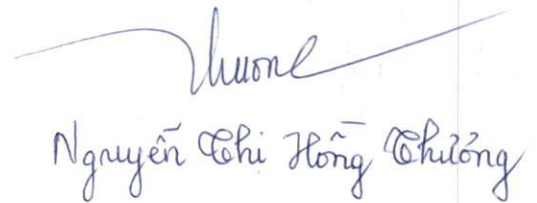 Thuong
Nguyễn Thi Hồng Thưởng